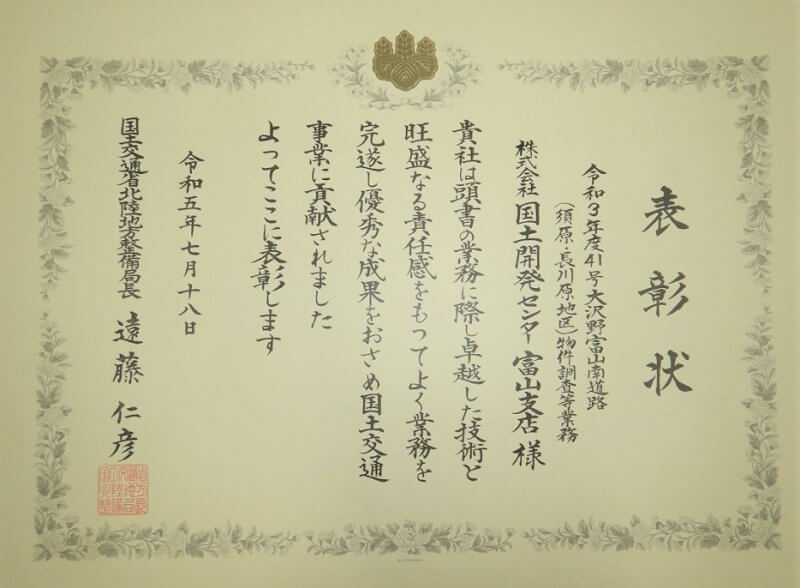 表彰状
令和3年度41号大沢野富山南道路
（須原・長川原地区）物件調査等業務
株式会社 国土開発センター 富山支店 様
貴社は頭書の業務に際し卓越した技術と
旺盛なる責任感をもってよく業務を
完遂し優秀な成果をおさめ国土交通
事業に貢献されました
よってここに表彰します
令和五年七月十八日
国土交通省北陸地方整備局長 遠藤仁彦